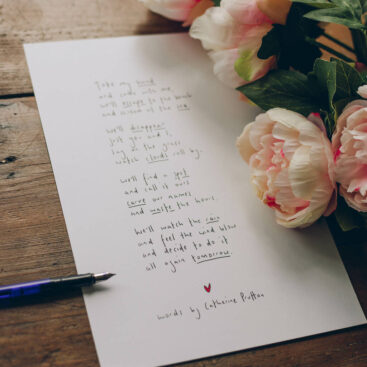 Take my hand
and come with me,
we'll escape to the beach
and dream of the sea.
We'll disappear
just you and i,
lay on the grass
watch clouds roll by.
We'll find a spot
and call it ours
carve our names
and waste the hours.
We'll watch the rain
and feel the wind blow
and decide to do it
all again tomorrow.
words by Catherine Prutton